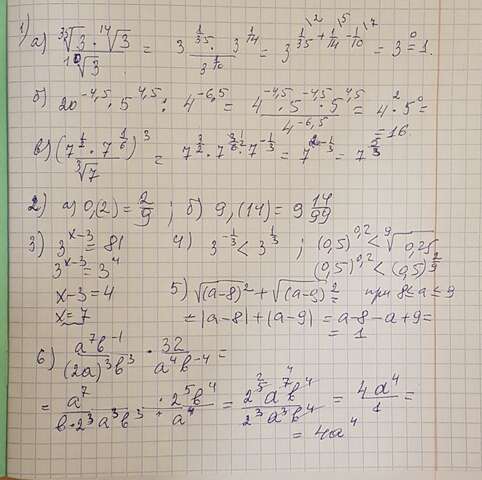 1) а) (³⁵√3 · ¹⁴√3) / ¹⁰√3 = (3^(1/35) · 3^(1/14)) / 3^(1/10) = 3^(1/35 + 1/14 - 1/10) = 3⁰ = 1.
б) 20^(-4,5) · 5^(4,5) : 4^(-6,5) = (4^(-4,5) · 5^(-4,5) · 5^(4,5)) / 4^(-6,5) = 4² · 5⁰ =
= 16.
в) ((7^(1/2) · 7^(1/6)) / ³√7)³ = 7^(3/2) · 7^(3/6) · 7^(-1/3) = 7^(2-1/3) = 7^(5/3)
2) а) 0,(2) = 2/9 ; б) 9,(14) = 9 14/99
3) 3^(x-3) = 81 4) 3^(-1/3) < 3^(1/3) ; (0,5)^(0,2) < ⁹√0,25
3^(x-3) = 3⁴ (0,5)^(0,2) < (0,5)^(2/9)
x-3 = 4 5) √(a-8)² + √(a-9)² = при 8 ≤ a ≤ 9
x = 7 = |a-8| + |a-9| = a-8-a+9 =
= 1
6) (a⁷b⁻¹) / ((2a)³b³) · 32 / (a⁴b⁻⁴) =
= a⁷ / (b·2³a³b³) · (2⁵b⁴) / a⁴ = (2⁵a⁷b⁴) / (2³a³b⁴) = 4a⁴ / 1 =
= 4a⁴